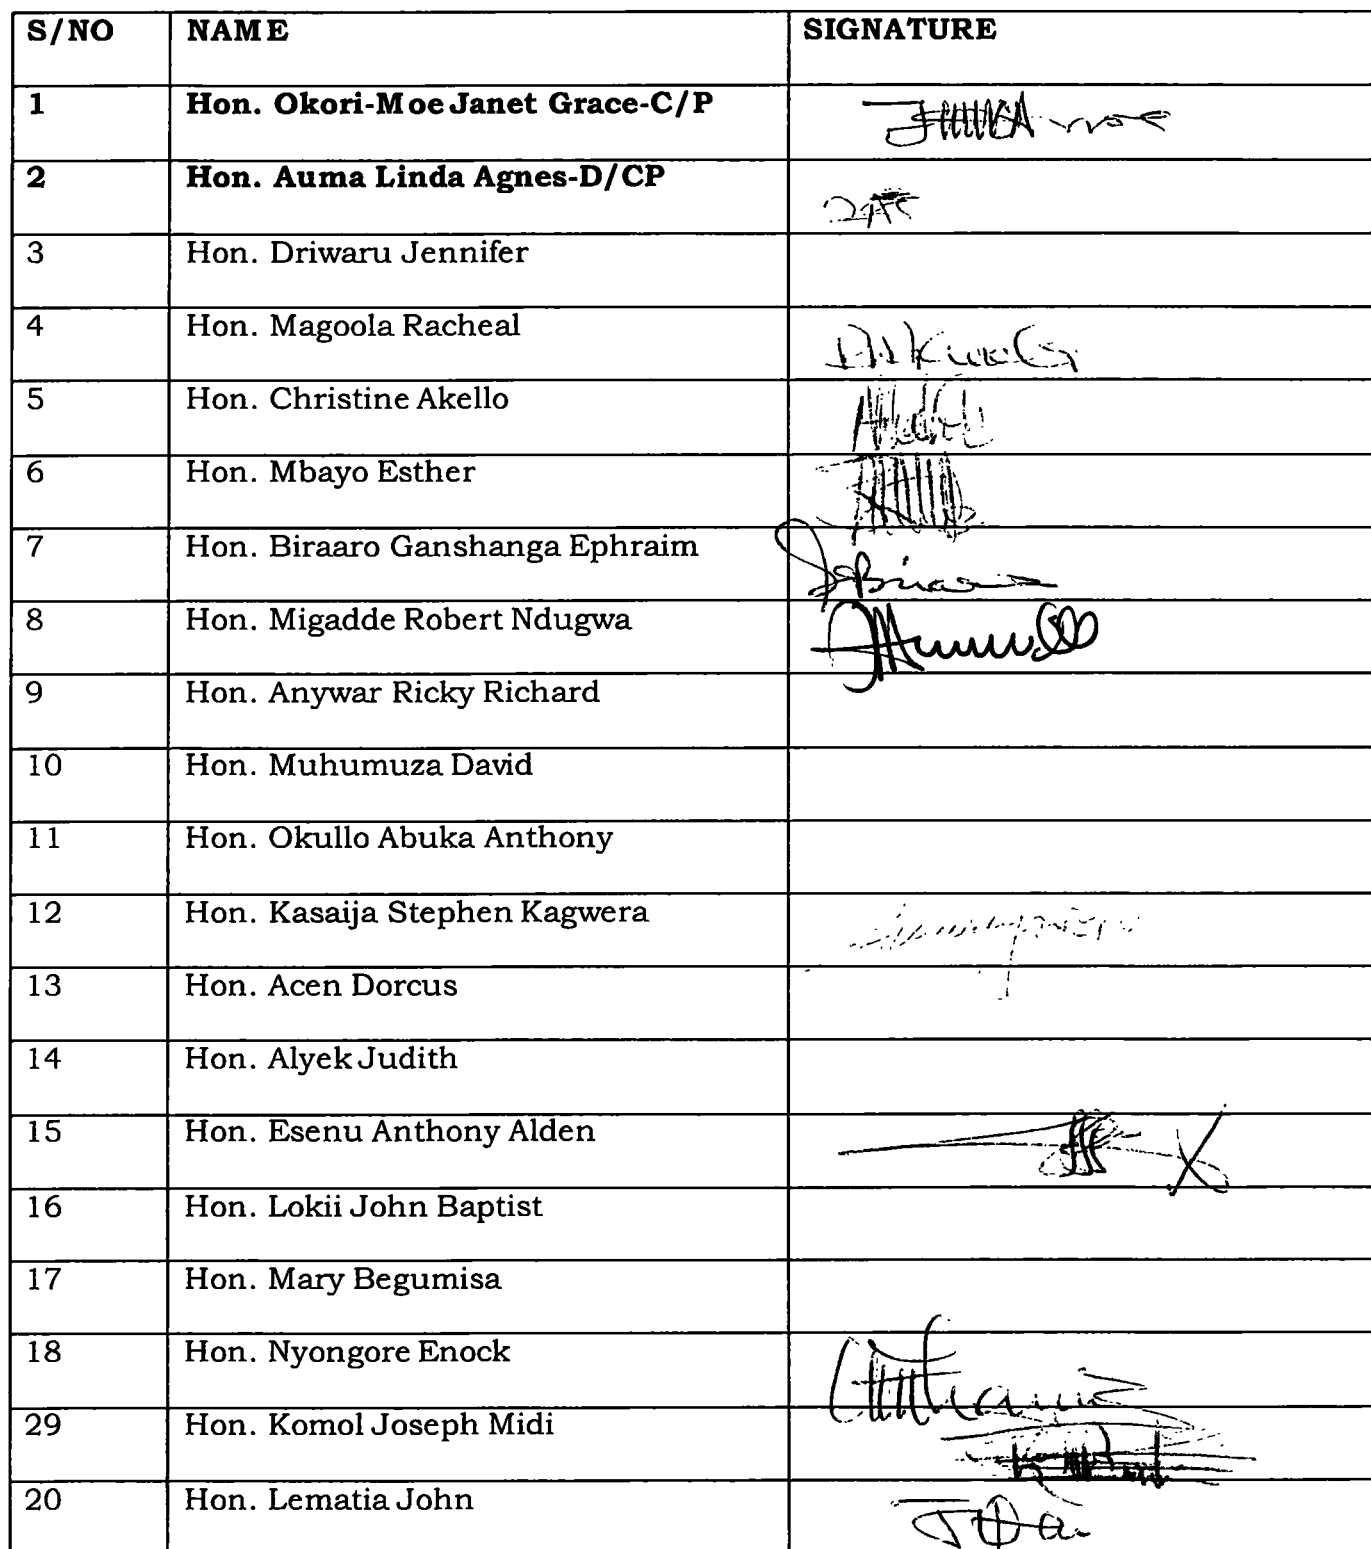 S/NO NAME SIGNATURE
1 Hon. Okori-Moe Janet Grace-C/P
2 Hon. Auma Linda Agnes-D/CP
3 Hon. Driwaru Jennifer
4 Hon. Magoola Racheal
5 Hon. Christine Akello
6 Hon. Mbayo Esther
7 Hon. Biraaro Ganshanga Ephraim
8 Hon. Migadde Robert Ndugwa
9 Hon. Anywar Ricky Richard
10 Hon. Muhumuza David
11 Hon. Okullo Abuka Anthony
12 Hon. Kasaija Stephen Kagwera
13 Hon. Acen Dorcus
14 Hon. Alyek Judith
15 Hon. Esenu Anthony Alden
16 Hon. Lokii John Baptist
17 Hon. Mary Begumisa
18 Hon. Nyongore Enock
29 Hon. Komol Joseph Midi
20 Hon. Lematia John